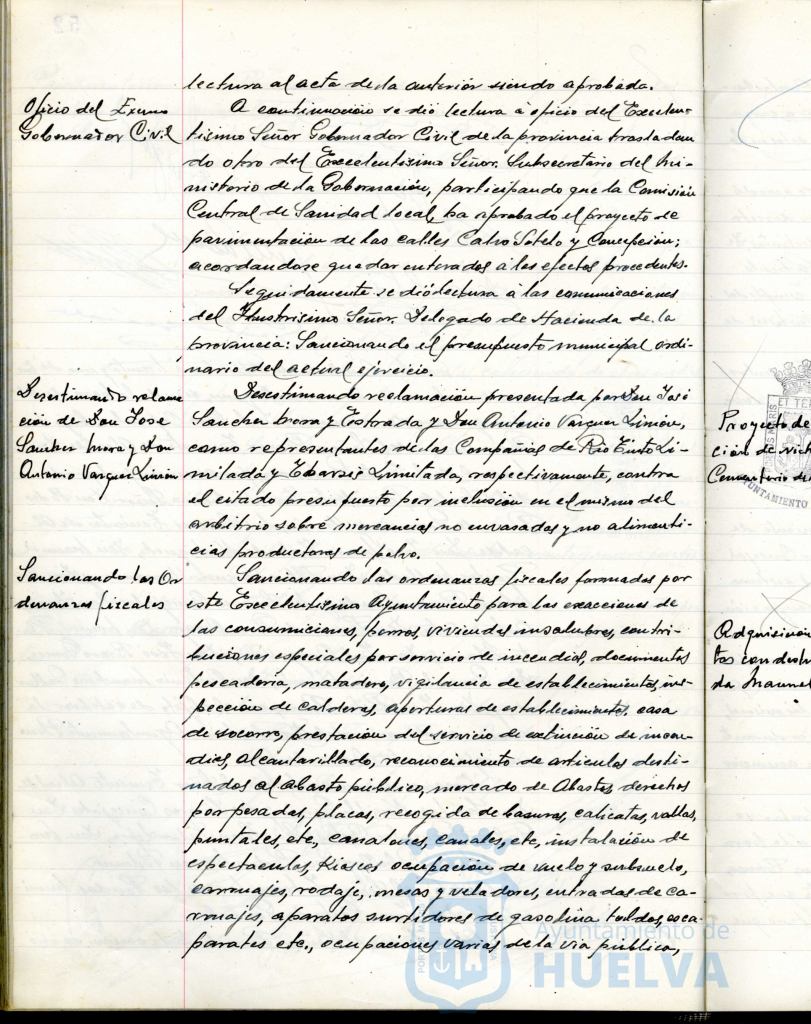 lectura al acta de la anterior siendo aprobada.
Oficio del Excmo
Gobernador Civil
A continuación se dió lectura á oficio del Excelen-
tisimo Señor Gobernador Civil de la provincia trasladan
do otro del Excelentisimo Señor Subsecretario del Mi-
nisterio de la Gobernación, participando que la Comisión
Central de Sanidad local, ha aprobado el proyecto de
pavimentación de las calles Calvo Sotelo y Concepción;
acordandose quedar enterados á los efectos procedentes.
Seguidamente se dió lectura á las comunicaciones
del Ilustrisimo Señor Delegado de Hacienda de la
provincia: Sancionando el presupuesto municipal ordi-
nario del actual ejercicio.
Desestimando reclama
ción de Don Jose
Sanchez Mora y Don
Antonio Vazquez Limón
Desestimando reclamación presentada por Don José
Sanchez Mora y Estrada y Don Antonio Vazquez Limón,
como representantes de las Compañías de Rio Tinto Li-
mitada y Tharsis Limitada, respectivamente, contra
el citado presupuesto por inclusión en el mismo del
arbitrio sobre mercancias no envasadas y no alimenti-
cias productoras de polvo.
Sancionando las Or
denanzas fiscales
Sancionando las ordenanzas fiscales formadas por
este Excelentisimo Ayuntamiento para las exacciones de
las consumiciones, perros, viviendas insalubres, contri-
buciones especiales por servicio de incendios, documentos
pescadería, matadero, vigilancia de establecimientos, ins-
pección de calderas, aperturas de establecimientos, casa
de socorro, prestación del servicio de extinción de incen-
dios, alcantarillado, reconocimiento de articulos desti-
nados al abasto público, mercado de Abastos, derechos
por pesadas, placas, recogida de basuras, calicatas, vallas,
puntales, etc, canalones, canales, etc, instalación de
espectaculos, Kioscos ocupación de vuelo y subsuelo,
carruajes, rodaje, mesas y veladores, entradas de ca-
rruajes, aparatos surtidores de gasolina toldos, esca
parates etc., ocupaciones varias de la via pública,
Proyecto de
ción de
Cementerio de
Adquisición
tos con dest
da Manuel
AYUNTAMIENTO
Ayuntamiento de
HUELVA